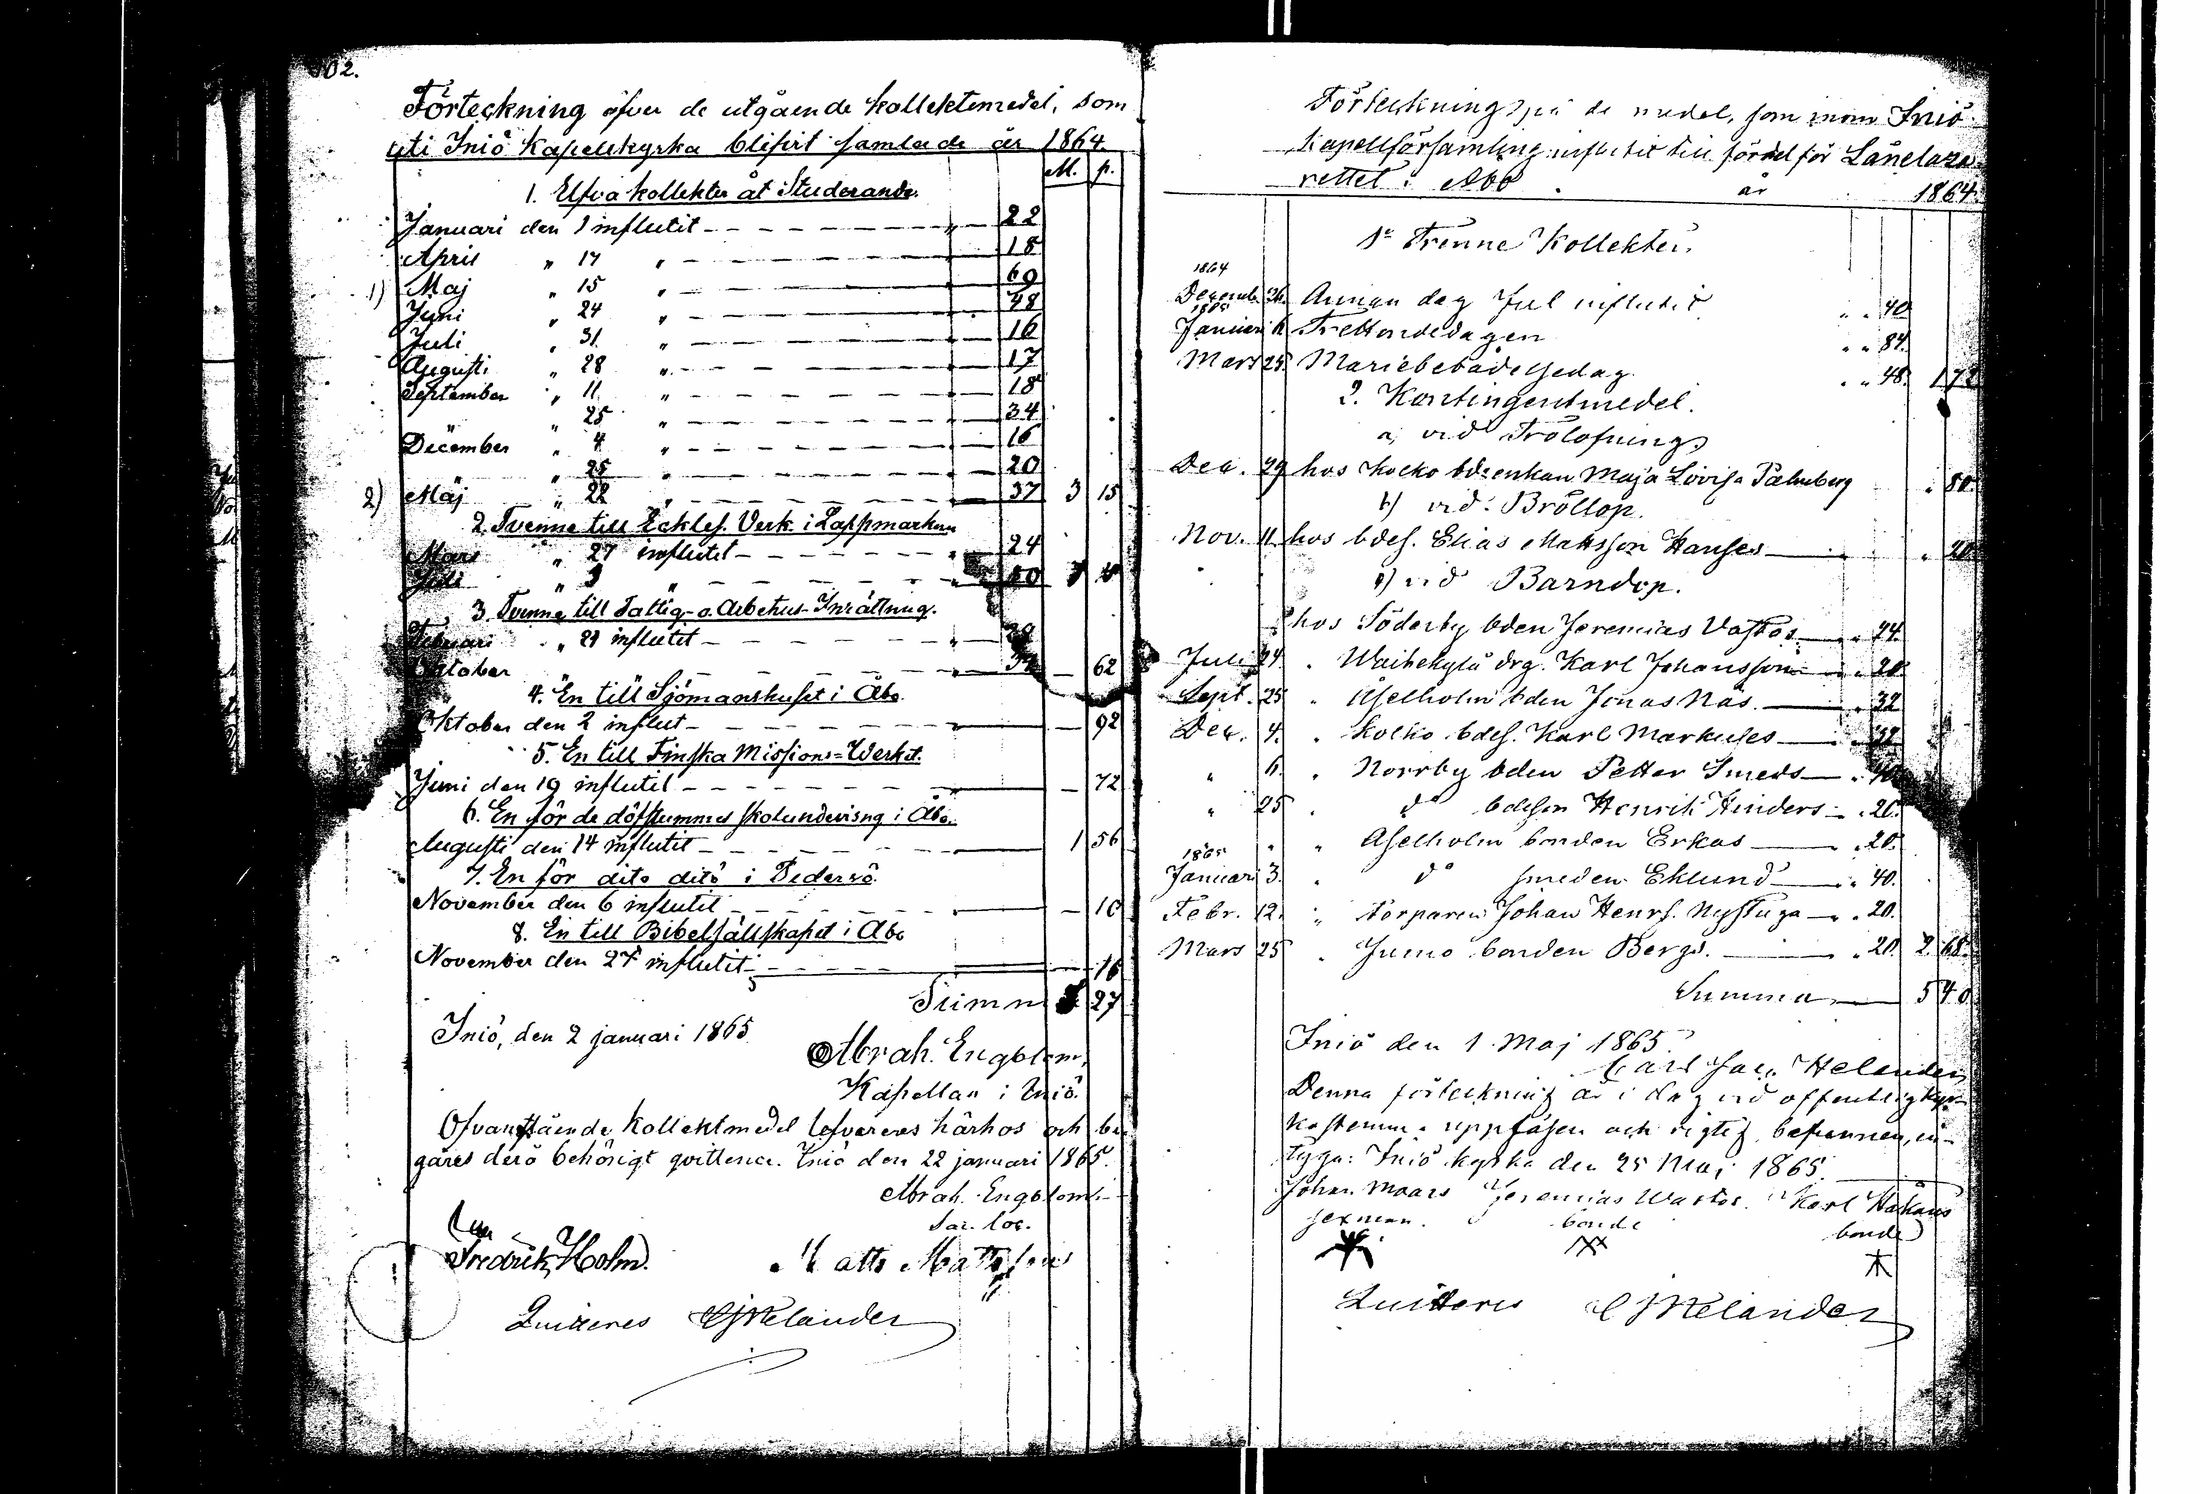 102.
Förteckning öfver de utgående kollektmedel, som
uti Iniö Kapellkyrka blifvit samlade år 1864
M. p.
1. Elfva kollekter åt Studerande.
Januari den 1 influtit 22
April " 17 " 18
1) Maj " 15 " 69
Juni " 24 " 48
Juli " 31 " 16
Augusti " 28 " 17
September " 11 " 18
" 25 " 34
December " 4 " 16
" 25 " 20
2) Maj " 22 " 37 3 15
2. Tvenne till Eckles. Verk. i Lappmarken
Mars " 27 influtit 24
Juli " 3 "
3. Tvenne till Fattig- o. Arbethus-Inrättning.
Februari " 21 influtit
Oktober 62
4. En till Sjömanshuset i Åbo
Oktober den 2 influt 92
5. En till Finska Missions-Verket.
Juni den 19 influtit 72
6. En för de döfstummes skolundervisng i Åbo.
Augusti den 14 influtit 1 56
7. En för dito dito i Pedersö.
November den 6 influtit 10
8. En till Bibelsällskapet i Åbo
November den 27 influtit 16
Summa 27
Iniö, den 2 januari 1865
Abrah. Engblom,
Kapellan i Iniö.
Ofvanstående kollektmedel lefvereras härhos och be
gäres derå behörigt qvittence. Iniö den 22 januari 1865.
Abrah. Engblom
Sac. loc.
Fredrik Holm. Matts Mattsson
Quitteres CJHelander
Förteckning på de medel, som inom Iniö
Kapellförsamling influtit till fördel för Länelaza-
rettet i Åbo år 1864.
1o Trenne Kollekter.
1864
Decemb. 26. Annan dag Jul influtit " " 40
1865
Januari 6. Trettondedagen " " 84.
Mars 25. Mariebebådelsedag. " " 48. 1 72
2. Kontingentmedel.
a, vid Trolofning
Dec. 29 hos Kolko bdeenkan Maja Lovisa Palmberg " 80.
b) vid Bröllop.
Nov. 11. hos bdes. Elias Mattsson Hanses " 20.
c) vid Barndop.
hos Söderby bden Jeremias Vastos " 24.
Juli 24. " Waihekylä drg. Karl Johansson " 20
Sept. 25 " Åselholm bden Jonas Näs. " 32
Dec. 4. " Kolko bdes. Karl Markules " 32
" 6. " Norrby bden Petter Smeds " 40
" 25 " do bdeson Henrik Hinders " 20.
" " Åselholm bonden Erkas " 20.
1865
Januari 3. " do smeden Eklund " 40.
Febr. 12. " torparen Johan Henrs. Nystuga " 20.
Mars 25 " Jumo bonden Bergs. " 20. 2 68.
Summa 5 40
Iniö den 1 Maj 1865
Carl Jac. Helander
Denna förteckning är i dag vid offentlig kyr-
kostemma uppläsen och rigtig befunnen, in-
tyga: Iniö kyrka den 25 Maj 1865.
Johan Maars Jeremias Wastos. Karl Håkans
sexman. bonde bonde
Quitteres CJHelander